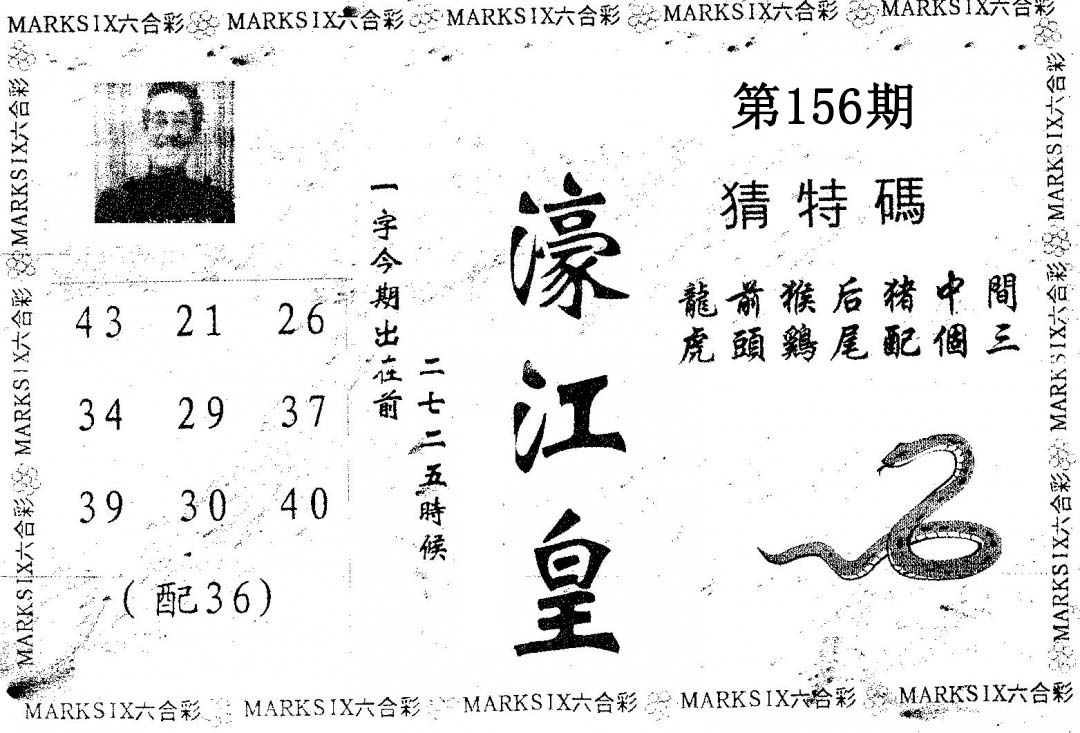 MARKSIX六合彩 MARKSIX六合彩 MARKSIX六合彩 MARKSIX六合彩 MARKSIX六合彩
MARKSIX六合彩 MARKSIX六合彩 MARKSIX六合彩
第156期
猜特碼
龍前猴后猪中間
虎頭鷄尾配個三
濠江皇
一字今期出在前
二七二五時候
43 21 26
34 29 37
39 30 40
(配36)
MARKSIX六合彩 MARKSIX六合彩 MARKSIX六合彩
MARKSIX六合彩 MARKSIX六合彩 MARKSIX六合彩 MARKSIX六合彩 MARKSIX六合彩